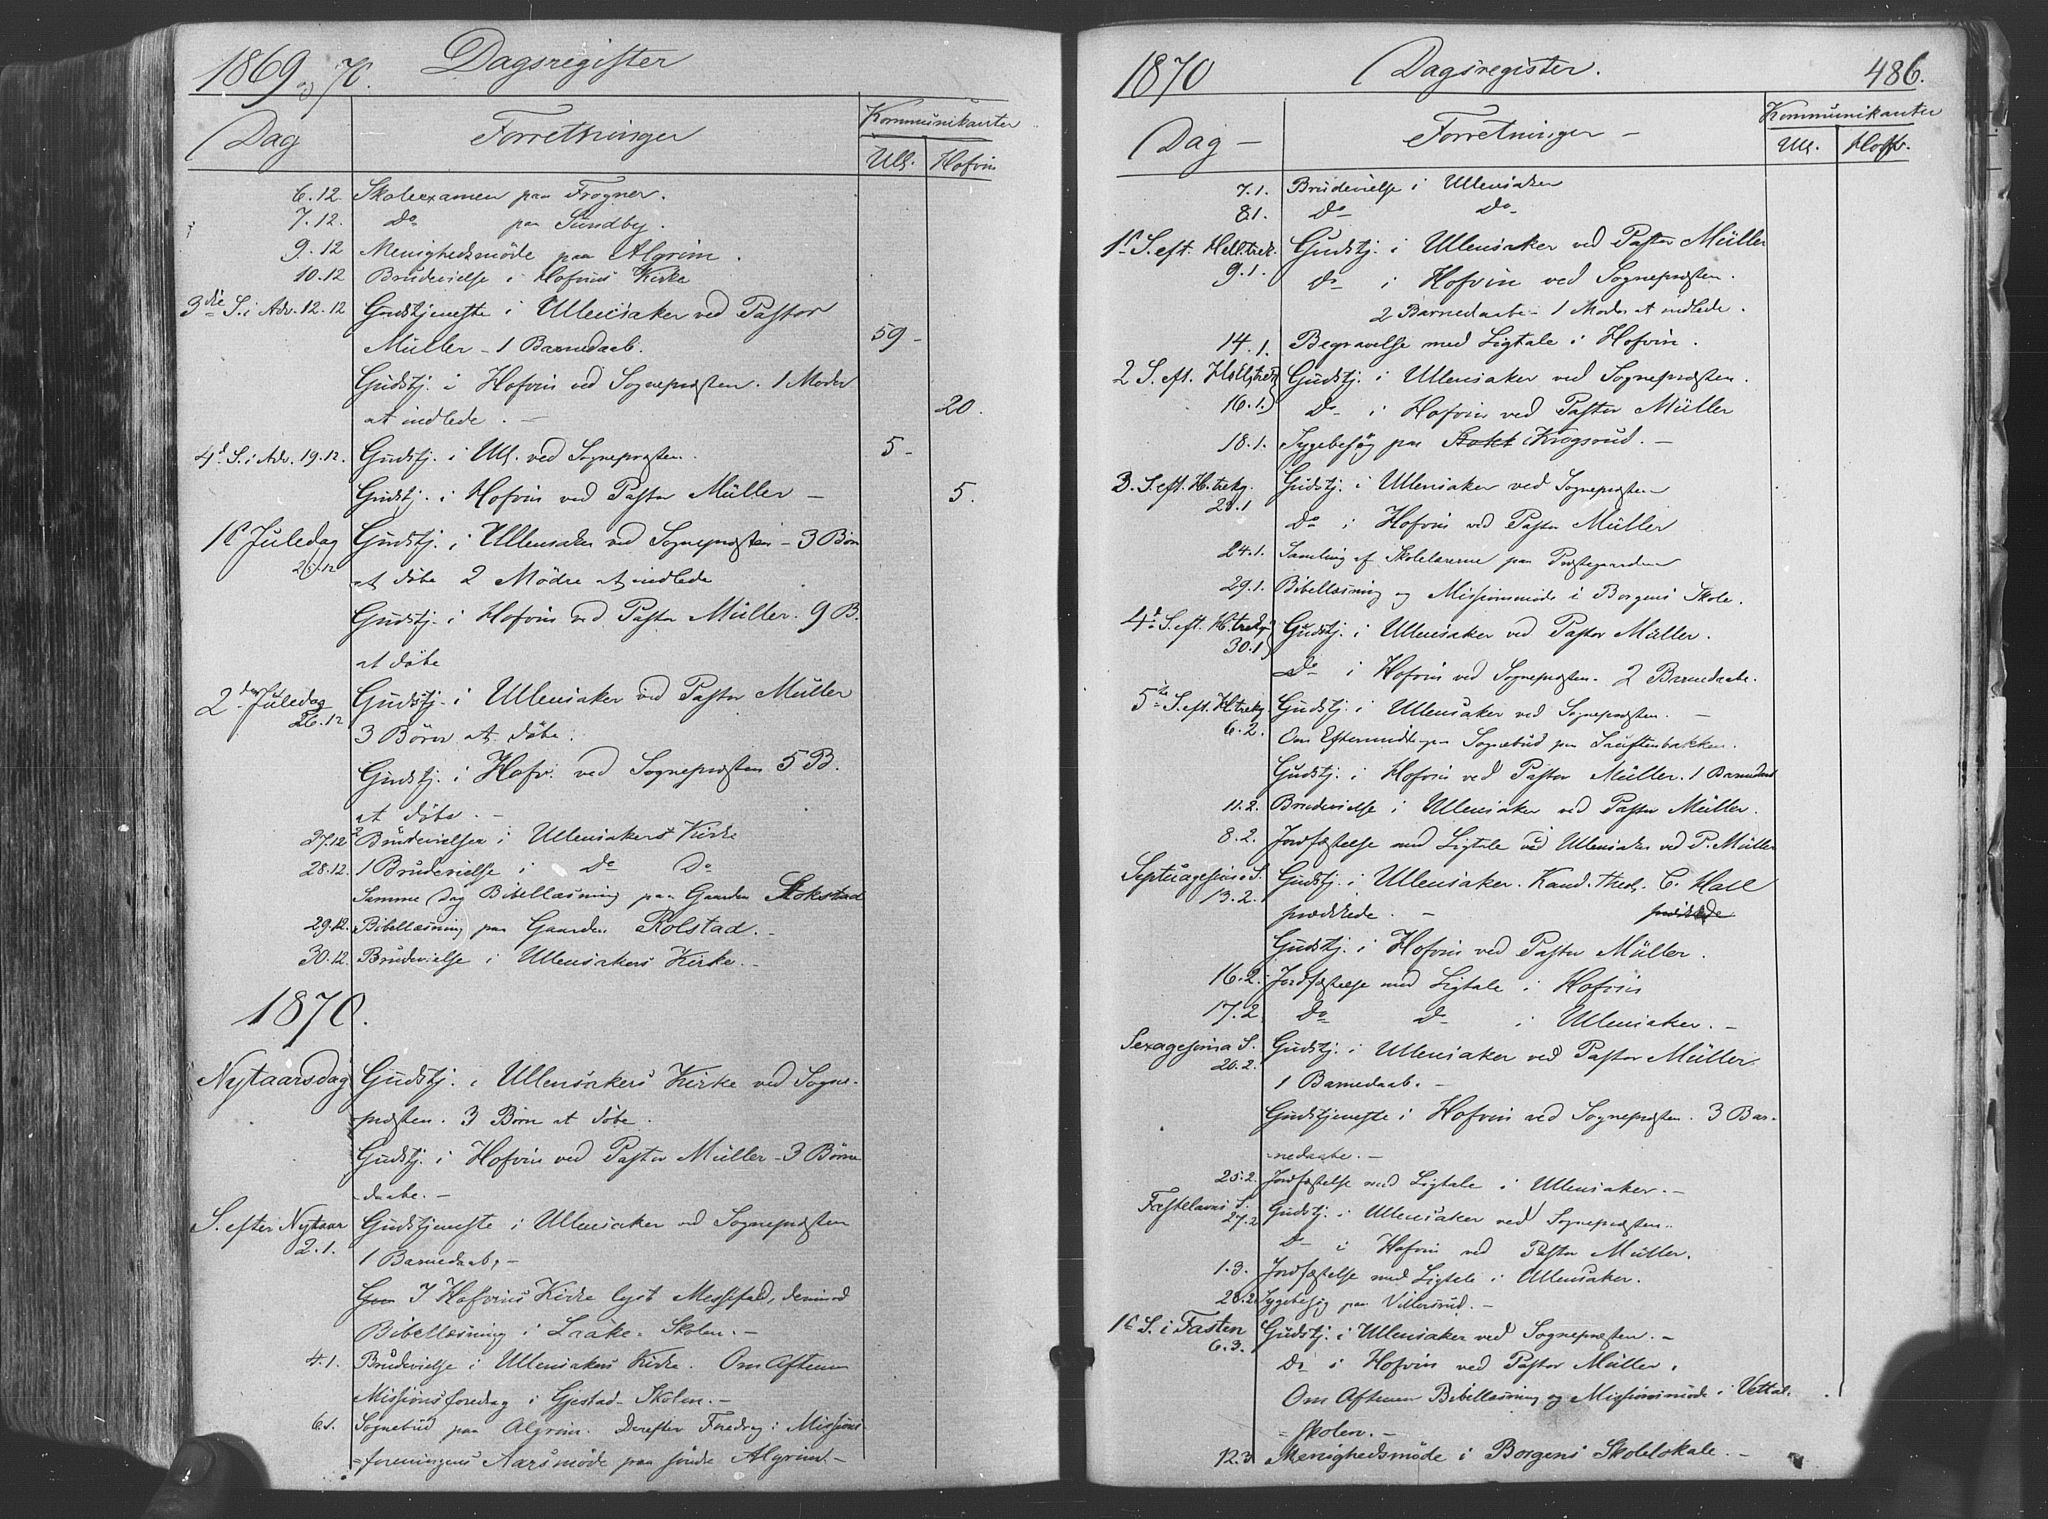 1869 og 70. Dagsregister
Dag Forretninger Kommunikanter
Ull. Hofvin
6.12. Skoleexamen paa Frogner.
7.12. Do paa Sundby.
9.12 Menighedsmøde paa Algrim.
10.12 Brudevielse i Hofvins Kirke
3die S. i Adv. 12.12 Gudstjeneste i Ullensaker ved Pastor
Müller - 1 Barnedaab. 59 -
Gudstj. i Hofvin ved Sognepræsten. 1 Moder
at indlede. - 20.
4de S. i Adv. 19.12. Gudstj. i Ull. ved Sognepræsten. 5 -
Gudstj. i Hofvin ved Pastor Müller - 5.
1ste Juledag Gudstj. i Ullensaker ved Sognepræsten - 3 Børn
25.12 at døbe 2 Mødre at indlede
Gudstj. i Hofvin ved Pastor Müller. 9 B.
at døbe
2den Juledag Gudstj. i Ullensaker ved Pastor Müller
26.12 3 Børn at døbe.
Gudstj. i Hofv. ved Sognepræsten 5 B.
at døbe. -
27.12 2 Brudevielser i Ullensakers Kirke
28.12. 1 Brudevielse i Do Do
Samme Dag Bibellæsning paa Gaarden Stokstad
29.12. Bibellæsning paa Gaarden Rolstad. -
30.12. Brudevielse i Ullensakers Kirke. -
1870.
Nytaarsdag Gudstj. i Ullensakers Kirke ved Sogne-
præsten. 3 Børn at døbe.
Gudstj. i Hofvin ved Pastor Müller - 3 Børne
daabe. -
S. efter Nytaar Gudstjeneste i Ullensaker ved Sognepræsten
2.1. 1 Barnedaab, -
I Hofvins Kirke lyst Messefald, derimod
Bibellæsning i Laake-Skolen. -
4.1. Brudevielse i Ullensakers Kirke. Om Aftenen
Missionsforedrag i Gjestad-Skolen. -
6.1. Sognebud paa Algrim. Derefter Foredrag i Missions-
=foreningens Aarsmøde paa søndre Algrim. -
1870 Dagsregister. 486.
Dag - Forretninger - Kommunikanter
Ull. Hofv.
7.1. Brudevielse i Ullensaker
8.1. Do Do
1ste S. eft. Hell.trek. Gudstj. i Ullensaker ved Pastor Müller
9.1. Do i Hofvin ved Sognepræsten.
2 Barnedaabe - 1 Moder at indlede.
14.1. Begravelse med Ligtale i Hofvin.
2 S. eft. Hellgtrek Gudstj. i Ullensaker ved Sognepræsten.
16.1. Do i Hofvin ved Pastor Müller
18.1. Sygebesøg paa Stokk Krogsrud. -
3. S. eft. H. trekg. Gudstj. i Ullensaker ved Sognepræsten
23.1 Do i Hofvin ved Pastor Müller
24.1. Samling af Skolelærerne paa Præstegaarden
29.1. Bibellæsning og Missionsmøde i Borgens Skole.
4de S. eft. H. trekg. Gudstj. i Ullensaker ved Pastor Müller.
30.1 Do i Hofvin ved Sognepræsten. 2 Barnedaabe.
5te S. eft. H. trekg. Gudstj. i Ullensaker ved Sognepræsten. -
6.2. Om Eftermiddagen Sognebud paa Tuftenbakken.
Gudstj. i Hofvin ved Pastor Müller. 1 Barnedaab
11.2. Brudevielse i Ullensaker ved Pastor Müller.
8.2. Jordfæstelse med Ligtale ved Ullensaker ved P. Müller
Septuagesima S. Gudstj. i Ullensaker. Kand. theol. C. Hall
13.2. prædikede. - prædikede
Gudstj. i Hofvin ved Pastor Müller.
16.2. Jordfæstelse med Ligtale i Hofvin
17.2. Do Do i Ullensaker. -
Sexagesima S. Gudstj. i Ullensaker ved Pastor Müller
20.2. 1 Barnedaab. -
Gudstjeneste i Hofvin ved Sognepræsten. 3 Bar-
-nedaabe. -
25.2. Jordfæstelse med Ligtale i Ullensaker. -
Fastelavns S. Gudstj. i Ullensaker ved Sognepræsten.
27.2 Do i Hofvin ved Pastor Müller.
1.3. Jordfæstelse med Ligtale i Ullensaker.
28.2. Sygebesøg paa Villersrud. -
1ste S. i Fasten Gudstj. i Ullensaker ved Sognepræsten. -
6.3. Do i Hofvin ved Pastor Müller.
Om Aftenen Bibellæsning og Missionsmøde i Vethal-
=skolen. -
12.3 Menighedsmøde i Borgens Skolelokale. -